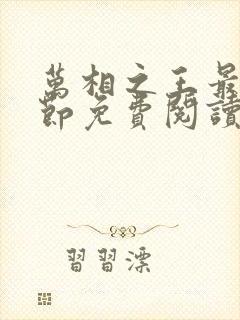 萬相之王最
節免費閱讀
習習漂